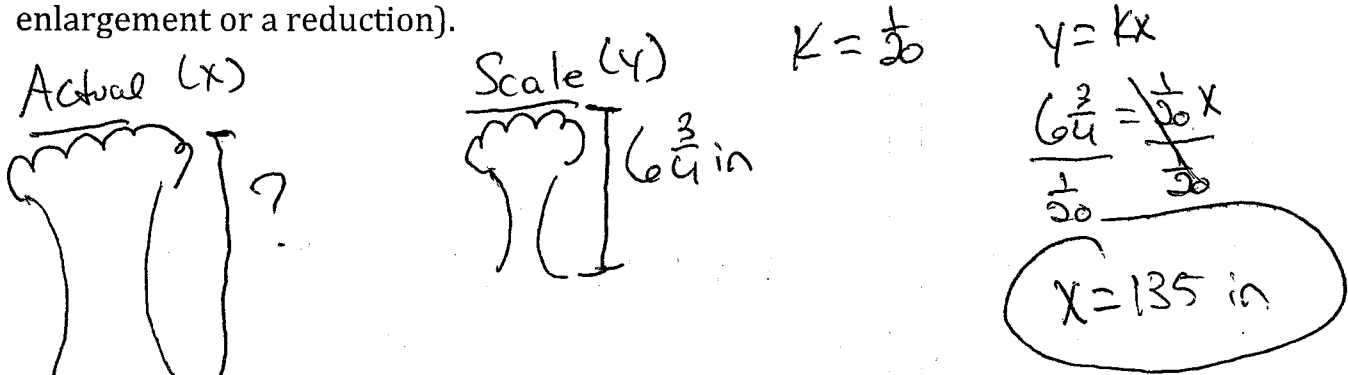 enlargement or a reduction).
Actual (x)
?
Scale (y)
6 3/4 in
K = 1/20
y = Kx
6 3/4 = 1/20 x
1/20 1/20
x = 135 in